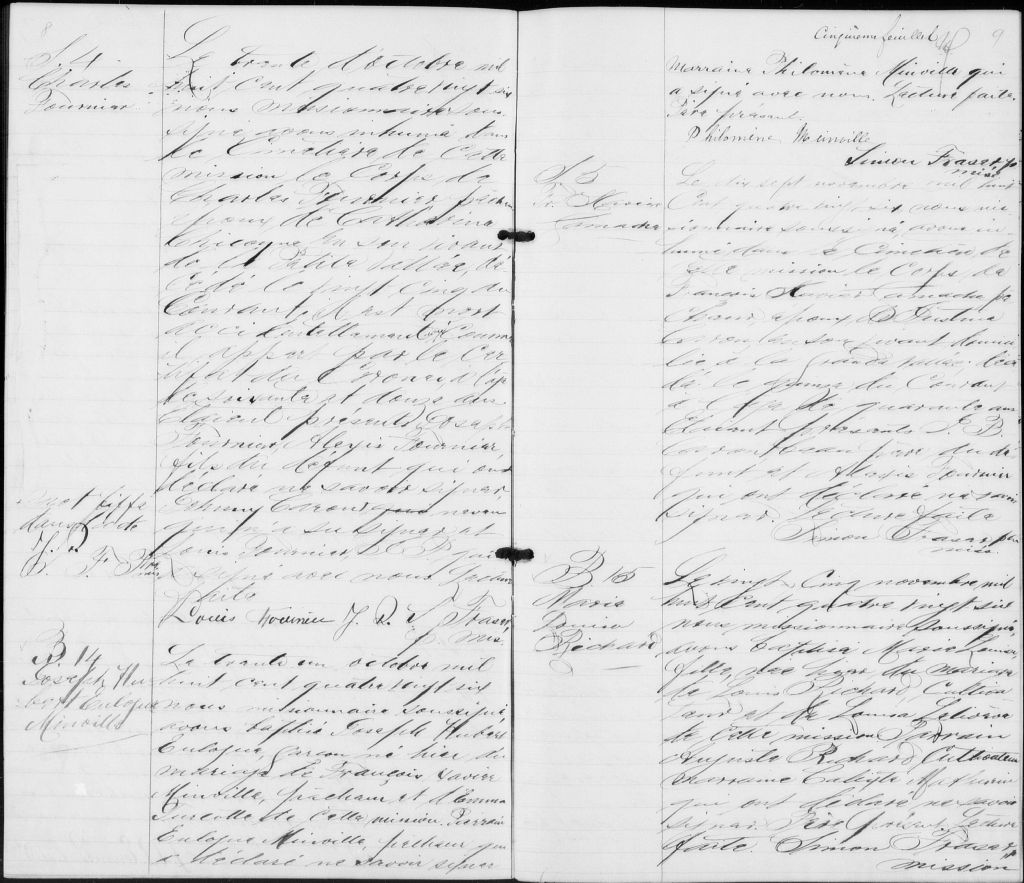 8
S. 4
Charles
Fournier
Le trente d'octobre mil
huit cent quatre vingt six
nous missionnaire sous-
signé avons inhumé dans
le Cimetière de Cette
mission le Corps de
Charles Fournier pêcheur
époux de Catherine
Chicoyne en son vivant
de la Petite Vallée, dé-
cédé le vingt cinq du
Courant
accidentellement Comme
il appert par le Cer-
tificat du Coroner à l'âge
de soixante et douze ans
Etaient présents Joseph
Fournier, Alexis Fournier,
fils du défunt qui ont
déclaré ne savoir signer
Johnny neveu
et
Louis Fournier qui
signé avec nous Lecture
faite
Louis Fournier J. P. S. Fraser
p. mis.
mot biffé
dans
B. 14
Joseph Hu-
bert Eulogue
Minville
Le trente un octobre mil
huit cent quatre vingt six
nous missionnaire soussigné,
avons baptisé Joseph Hubert
Eulogue, garçon né hier du
mariage de François Xavier
Minville, pêcheur et d'Emma
Turcotte de Cette mission Parrain
Eulogue Minville, pêcheur qui
a déclaré ne savoir signer
Cinquième feuillet
9
Marraine Philomène Minville qui
a signé avec nous. Lecture faite.
Père présent.
Philomène Meinville
Simon Fraser p
miss
S 5
Fr. Xavier
Le dix sept novembre mil huit
Cent quatre vingt six nous mis-
sionnaire soussigné, avons in-
humé dans le Cimetière de
Cette mission le Corps de
François Xavier pê-
cheur, époux, D. Justine
Caron, en son vivant
de la Grande Vallée décé-
dé le onze du Courant
à l'âge de quarante ans
Etaient présents J. B.
Caron beau père du dé-
funt et Alexis Fournier
qui ont déclaré ne savoir
signer. Lecture faite
Simon Fraser ptr
miss.
B 15
Marie
Louise
Richard
Le vingt Cinq novembre mil
huit Cent quatre vingt six
nous missionnaire soussigné,
avons baptisé Marie Louise
fille, née hier du mariage
de Louis Richard, Cultiva-
teur et de Louisa
de Cette mission Parrain
Auguste Richard Cultivateur
Marraine Calixte Mathurin
qui ont déclaré ne savoir
signer. Père présent Lecture
faite. Simon Fraser ptr
mission